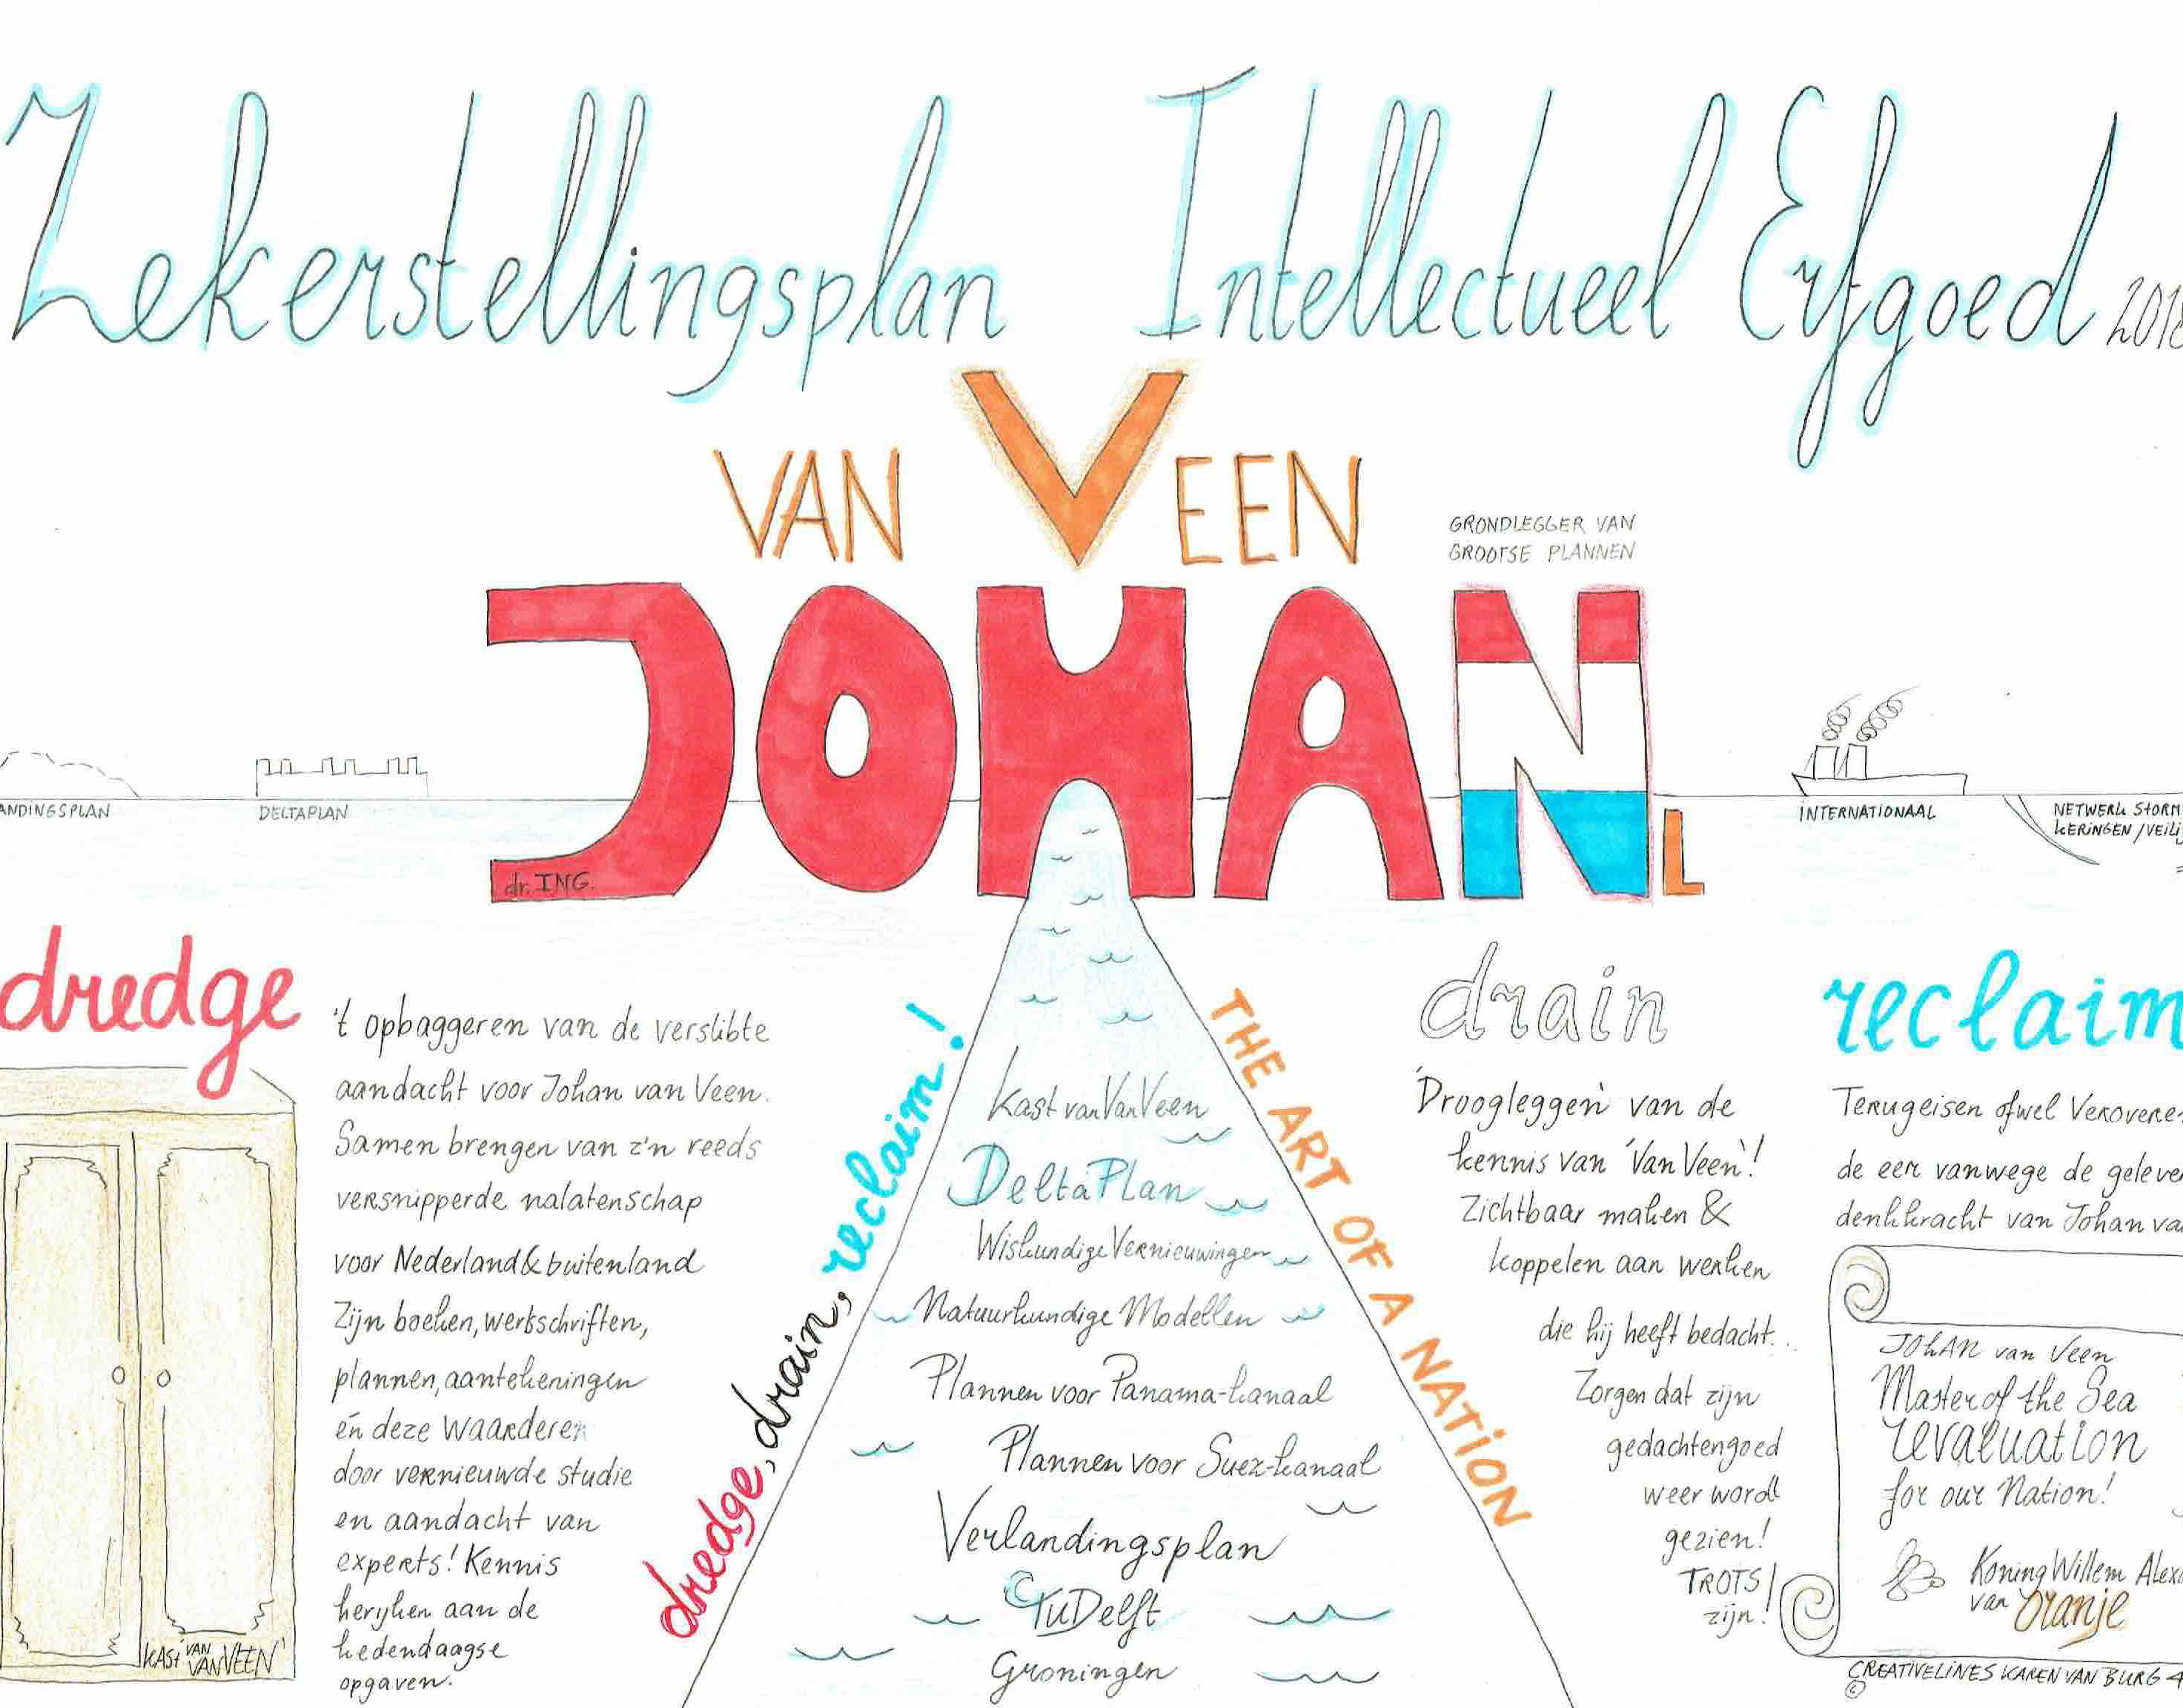 Zekerstellingsplan Intellectueel Erfgoed
VAN VEEN
GRONDLEGGER VAN
GROOTSE PLANNEN
JOHAN
NL
dr. ING.
ANDINGSPLAN
DELTAPLAN
INTERNATIONAAL
NETWERK STORM
KERINGEN / VEILI
dredge
't opbaggeren van de verslibte
aandacht voor Johan van Veen.
Samen brengen van z'n reeds
versnipperde nalatenschap
voor Nederland & buitenland
Zijn boeken, werkschriften,
plannen, aantekeningen
én deze waarderen
door vernieuwde studie
en aandacht van
experts! Kennis
herijken aan de
hedendaagse
opgaven.
KAST VAN VAN VEEN'
dredge, drain, reclaim!
Kast van Van Veen
DeltaPlan
Wiskundige Vernieuwingen
Natuurkundige Modellen
Plannen voor Panama-kanaal
Plannen voor Suez-kanaal
Verlandingsplan
TuDelft
Groningen
THE ART OF A NATION
drain
'Droogleggen' van de
kennis van 'Van Veen'!
Zichtbaar maken &
koppelen aan werken
die hij heeft bedacht...
Zorgen dat zijn
gedachtengoed
weer wordt
gezien!
TROTS
zijn!
reclaim
Terugeisen ofwel Verovere
de eer vanwege de geleve
denkkracht van Johan va
JOHAN van Veen
Master of the Sea
revaluation
for our Nation!
Koning Willem Alexa
van Oranje
© CREATIVELINES KAREN VAN BURG 4